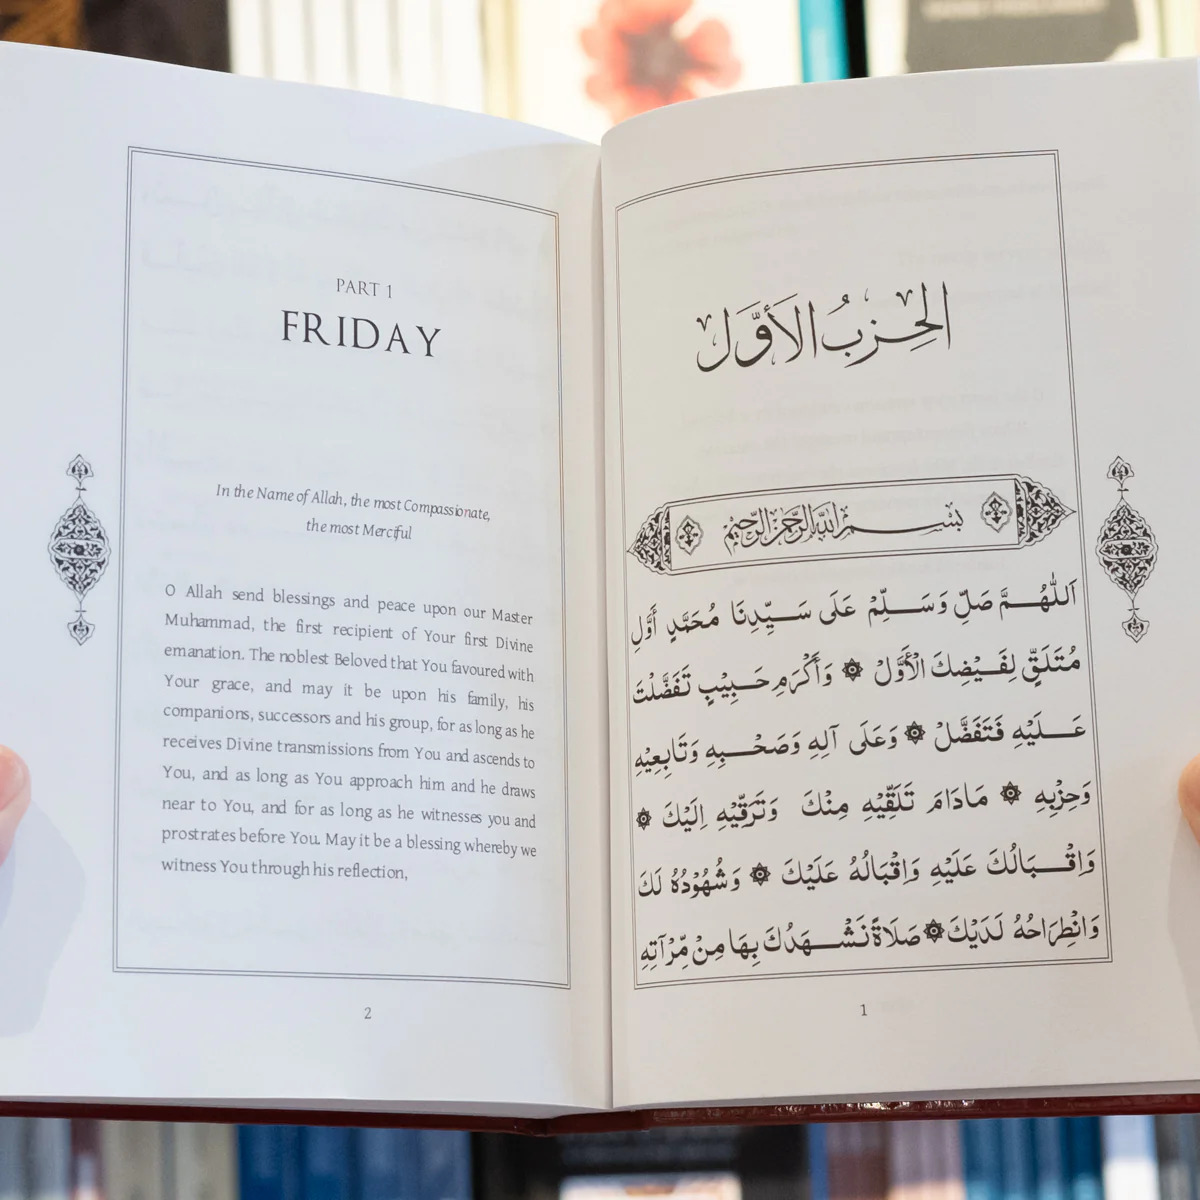 PART 1
FRIDAY
In the Name of Allah, the most Compassionate,
the most Merciful
O Allah send blessings and peace upon our Master
Muhammad, the first recipient of Your first Divine
emanation. The noblest Beloved that You favoured with
Your grace, and may it be upon his family, his
companions, successors and his group, for as long as he
receives Divine transmissions from You and ascends to
You, and as long as You approach him and he draws
near to You, and for as long as he witnesses you and
prostrates before You. May it be a blessing whereby we
witness You through his reflection,
2
الحِزبُ الأَوَّل
بسم الله الرحمن الرحيم
اَللّٰهُمَّ صَلِّ وَسَلِّمْ عَلَى سَيِّدِنَا مُحَمَّدٍ أَوَّلِ
مُتَلَقٍّ لِفَيْضِكَ الْأَوَّلْ ۞ وَأَكْرَمِ حَبِيْبٍ تَفَضَّلْتَ
عَلَيْهِ فَتَفَضَّلْ ۞ وَعَلَى آلِهِ وَصَحْبِهِ وَتَابِعِيْهِ
وَحِزْبِهِ ۞ مَادَامَ تَلَقِّيْهِ مِنْكَ وَتَرَقِّيْهِ اِلَيْكَ ۞
وَاِقْبَالُكَ عَلَيْهِ وَاِقْبَالُهُ عَلَيْكَ ۞ وَشُهُوْدُهُ لَكَ
وَانْطِرَاحُهُ لَدَيْكَ ۞ صَلَاةً نَشْهَدُكَ بِهَا مِنْ مِّرْآتِهِ
1